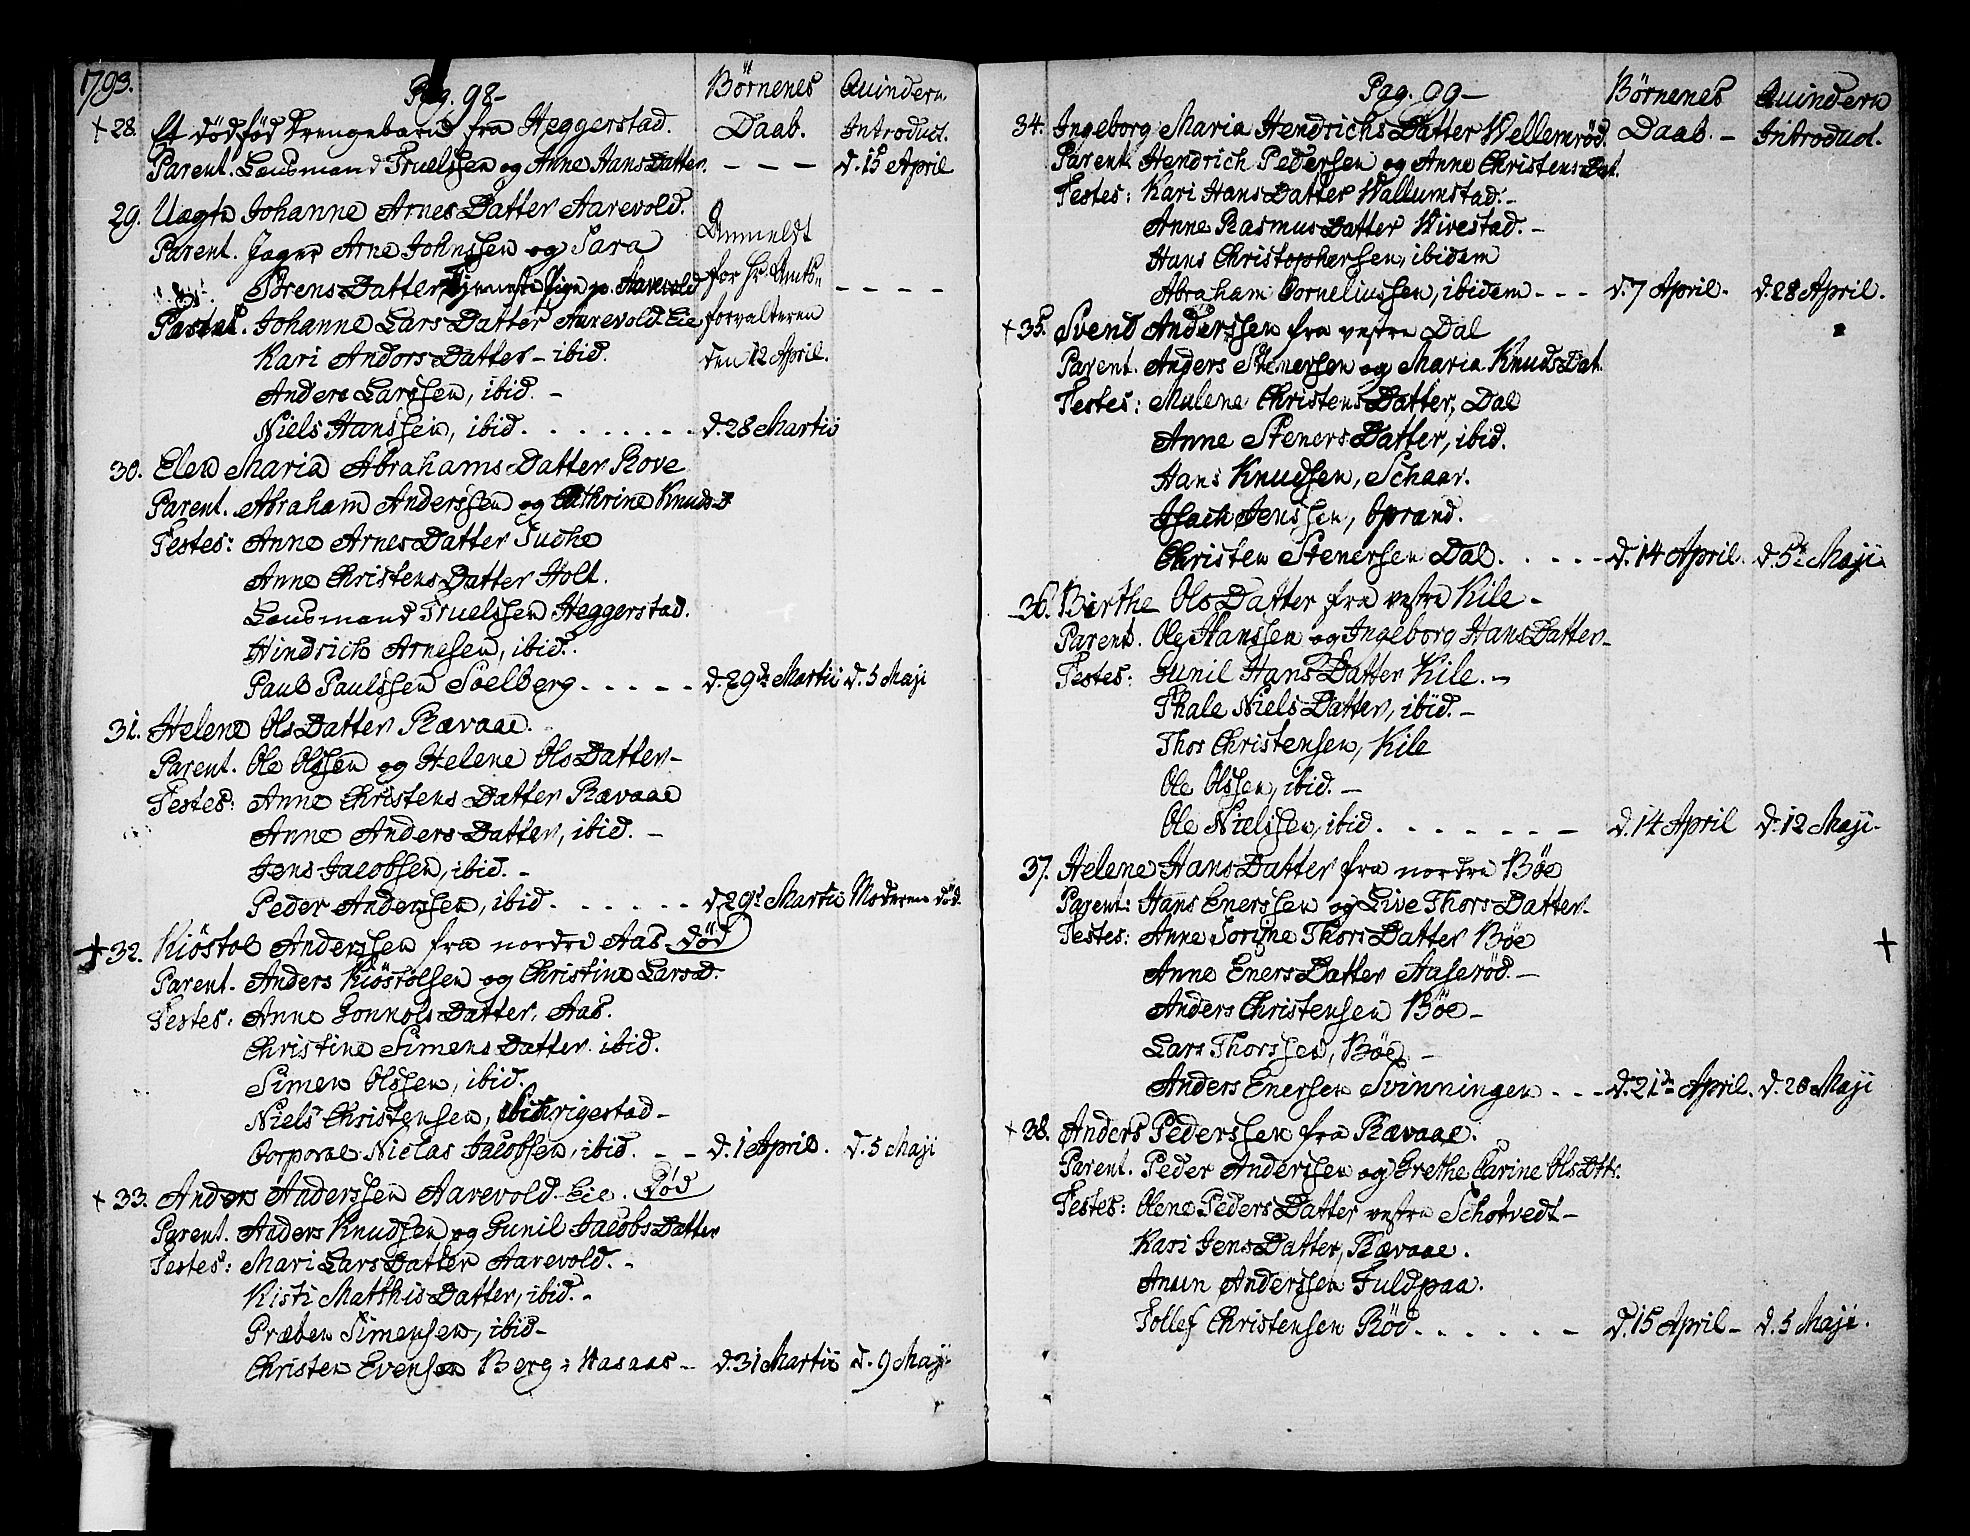 1793.
Pag. 98-
Börnenes Daab.
Quindern Introduct.
+ 28. Et dödföd Drengebarn fra Heggerstad.
Parent. Lensmand Truelssen og Anne HansDatter. - - - d. 15 April
29. Uægte Johanne ArnesDatter Aarevold.
Parent. Jager Arne Johnssen og Sara
SörensDatter Tjeneste Pige p. Aarevold
Anmeldt for Hr. Amts-forvalteren den 12 April. - - - -
Testes. Johanne LarsDatter Aarevold Eie
Kari AndorsDatter - ibid.
Anders Larssen, ibid. -
Niels Hanssen, ibid. . . . . . . . d. 28 Martii
30. Elen Maria AbrahamsDatter Rove
Parent. Abraham Anderssen og Cathrine KnudsD
Testes: Anne ArnesDatter Tudhe
Anne ChristensDatter Holt.
Lensmand Truelssen Heggerstad.
Hindrich Arnesen, ibid.
Paul Paulssen Soelberg. . . . . d. 29de Martii d. 5 Maji
31. Helene OlsDatter Rævaae.
Parent. Ole Olssen og Helene OlsDatter-
Testes: Anne ChristensDatter Rævaae
Anne AndersDatter, ibid. -
Jens Jacobsen, ibid. -
Peder Anderssen, ibid. . . . . . . d. 29de Martii Moderen död.
+ 32. Kiöstol Anderssen fra nordre Aas död
Parent. Anders Kiöstolssen og Christine Larsd.
Testes. Anne GonnolsDatter. Aas.
Christine SimensDatter. ibid.
Simen Olssen, ibid.
Niels Christensen,
Corporal Niclas Jacobsen, ibid. - - d. 1 April. d. 5 Maji
+ 33. Anders Anderssen Aarevold-Eie. Död
Parent. Anders Knudsen og Gunil JacobsDatter
Testes: Mari LarsDatter Aarevold. -
Kisti MatthisDatter, ibid. -
Præben Simensen, ibid-
Christen Evensen Berg i Hasaas - d. 31 Martii d. 9 Maji
Pag. 99 -
Börnenes Daab. -
Quindern Introduct.
34. Ingeborg Maria HendrichsDatter Wellemröd.
Parent. Hendrich Pedersen og Anne ChristensDat.
Testes: Kari HansDatter Wallumstad. -
Anne RasmusDatter Wivestad. -
Hans Christophersen, ibidem
Abraham Corneliussen, ibidem - - - d. 7 April. d. 28 April.
+ 35. Svend Anderssen fra vestre Dal
Parent. Anders Stenersen og Maria KnudsDat.
Testes: Malene ChristensDatter, Dal
Anne StenersDatter, ibid.
Hans Knudsen, Schaar.
Isach Jenssen, Oprand.
Christen Stenersen Dal. . . . . d. 14 April. d. 5te Maji
36. Birthe OlsDatter fra vestre Kile -
Parent. Ole Hanssen og Ingeborg HansDatter-
Testes: Gunil HansDatter Kile. -
Thale NielsDatter, ibid. -
Thor Christensen, Kile
Ole Olssen, ibid. -
Ole Nielssen, ibid. . . . . . . - d. 14 April d. 12 Maji.
37. Helene HansDatter fra nordre Böe
Parent: Hans Enerssen og Live ThorsDatter-
Testes: Anne Sorine ThorsDatter Böe +
Anne EnersDatter Aaseröd. -
Anders Christensen Böe -
Lars Thorssen, Böe -
Anders Enersen Svinningen - - - d. 21de April. d. 20 Maji
+ 38. Anders Pederssen fra Rævaae.
Parent. Peder Anderssen og Grethe Carine OlsDtt.
Testes: Olene PedersDatter vestre Schotvedt -
Kari JensDatter, Rævaae.
Anun Anderssen Fuldpaa.
Tollef Christensen Röd. . . . . . - d. 15 April - d. 5 Maji.